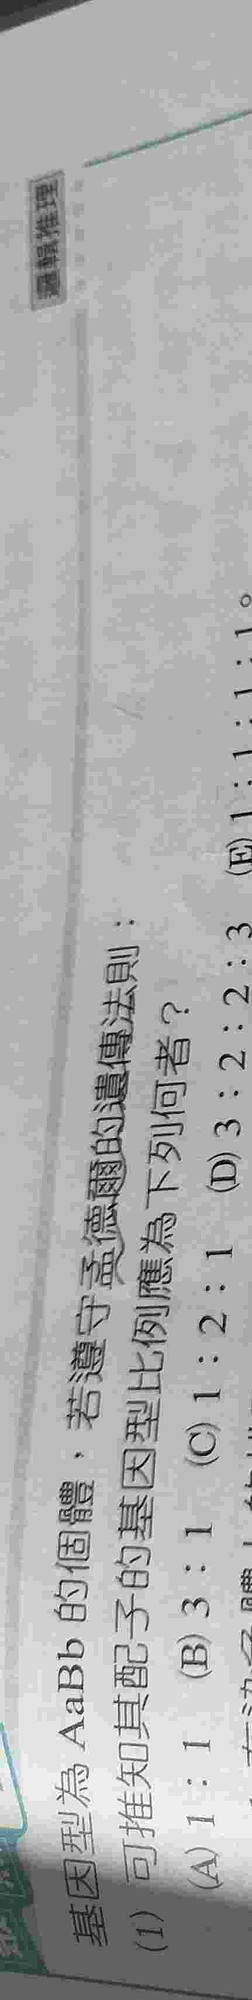 邏輯推理
基因型為 AaBb 的個體，若遵守孟德爾的遺傳法則：
(1) 可推知其配子的基因型比例應為下列何者？
(A) 1：1 (B) 3：1 (C) 1：2：1 (D) 3：2：2：3 (E) 1：1：1：1。